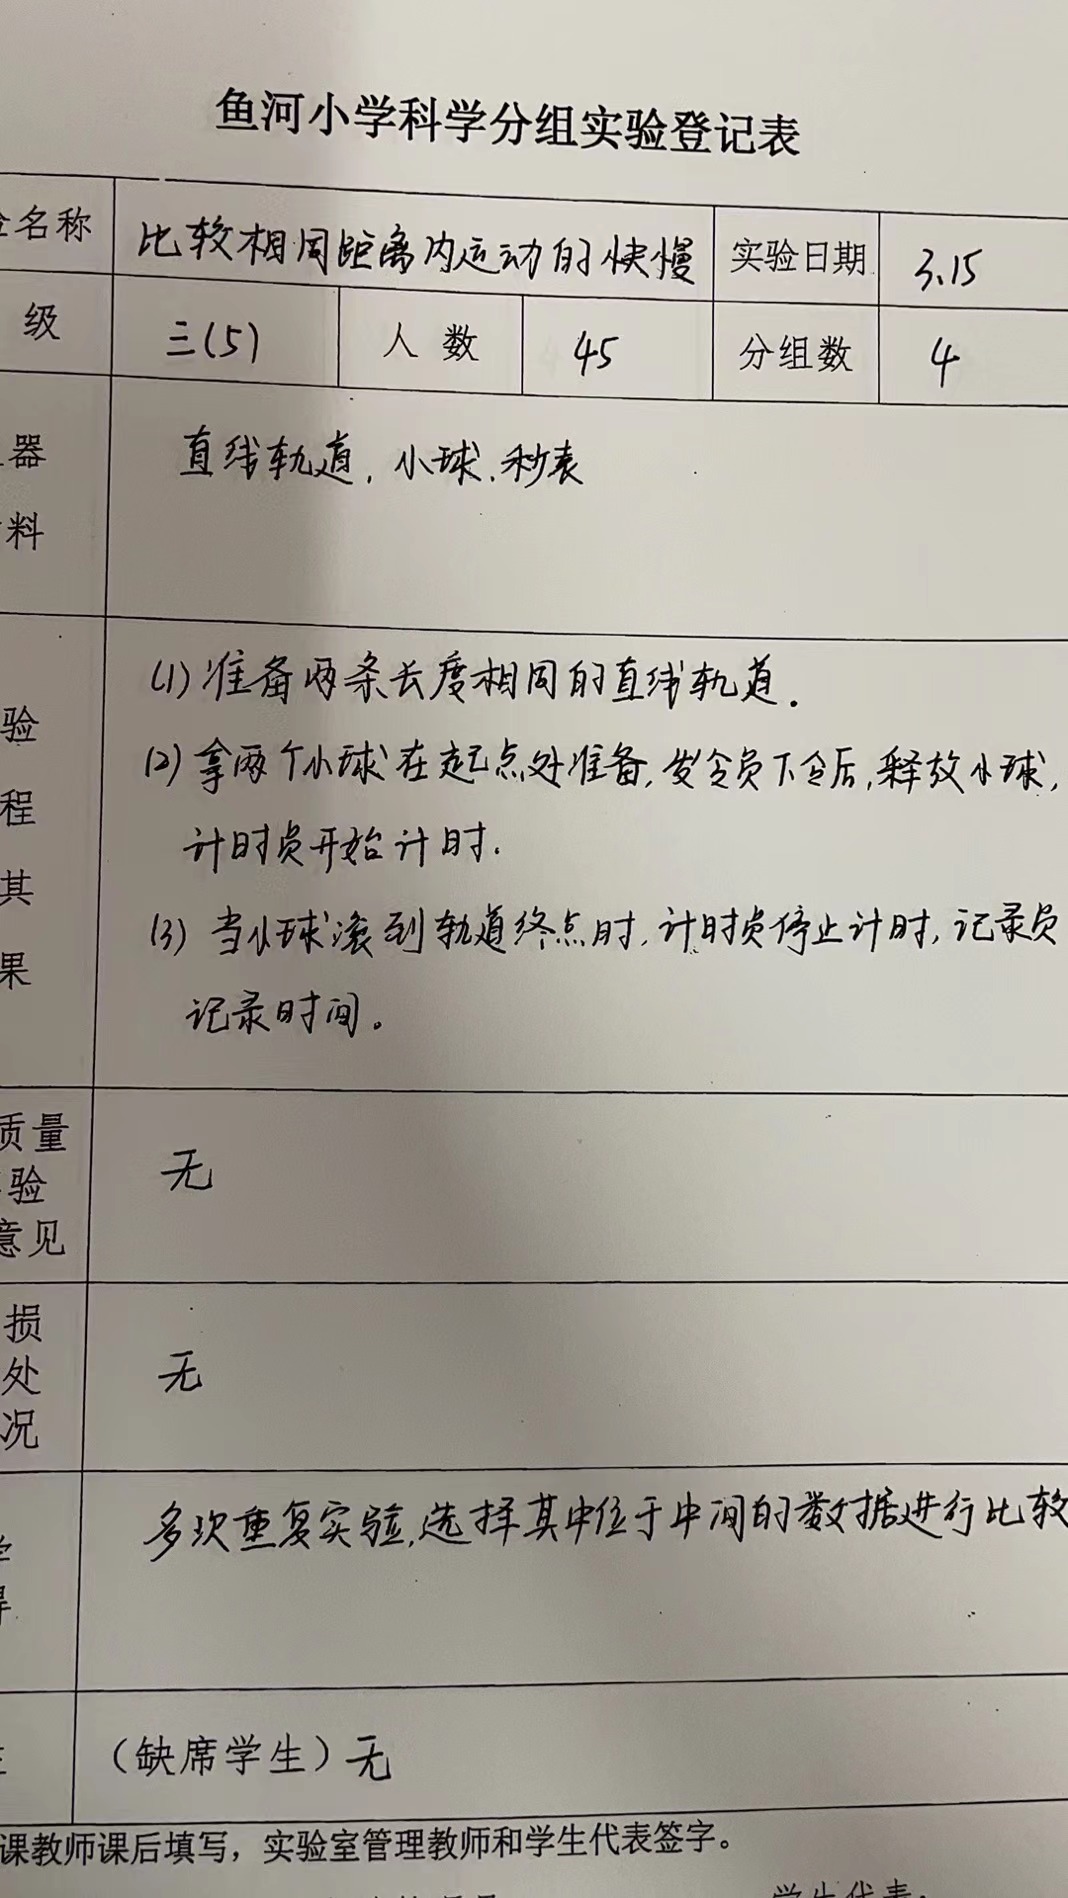 鱼河小学科学分组实验登记表
名称 比较相同距离内运动的快慢 实验日期 3.15
级 三(5) 人数 45 分组数 4
器 直线轨道,小球,秒表
料
(1)准备两条长度相同的直线轨道.
验
(2)拿两个小球在起点处准备,发令员下令后,释放小球,
程 计时员开始计时.
其 (3)当小球滚到轨道终点时,计时员停止计时,记录员
果 记录时间。
质量
验 无
意见
损
处 无
况
多次重复实验,选择其中位于中间的数据进行比较
(缺席学生)无
课教师课后填写,实验室管理教师和学生代表签字。
学生代表: